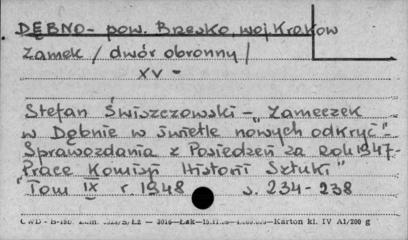 DĘBNO - pow. Brzesko woj Kraków
Zamek / dwór obronny /
XV -
Stefan Świszczowski - "Zameczek
w Dębnie w świetle nowych odkryć"
Sprawozdania z Posiedzeń za rok 1947-
"Prace Komisji Historii Sztuki"
Tom IX r. 1948 s. 234-238
Karton kl. IV A1/200 g